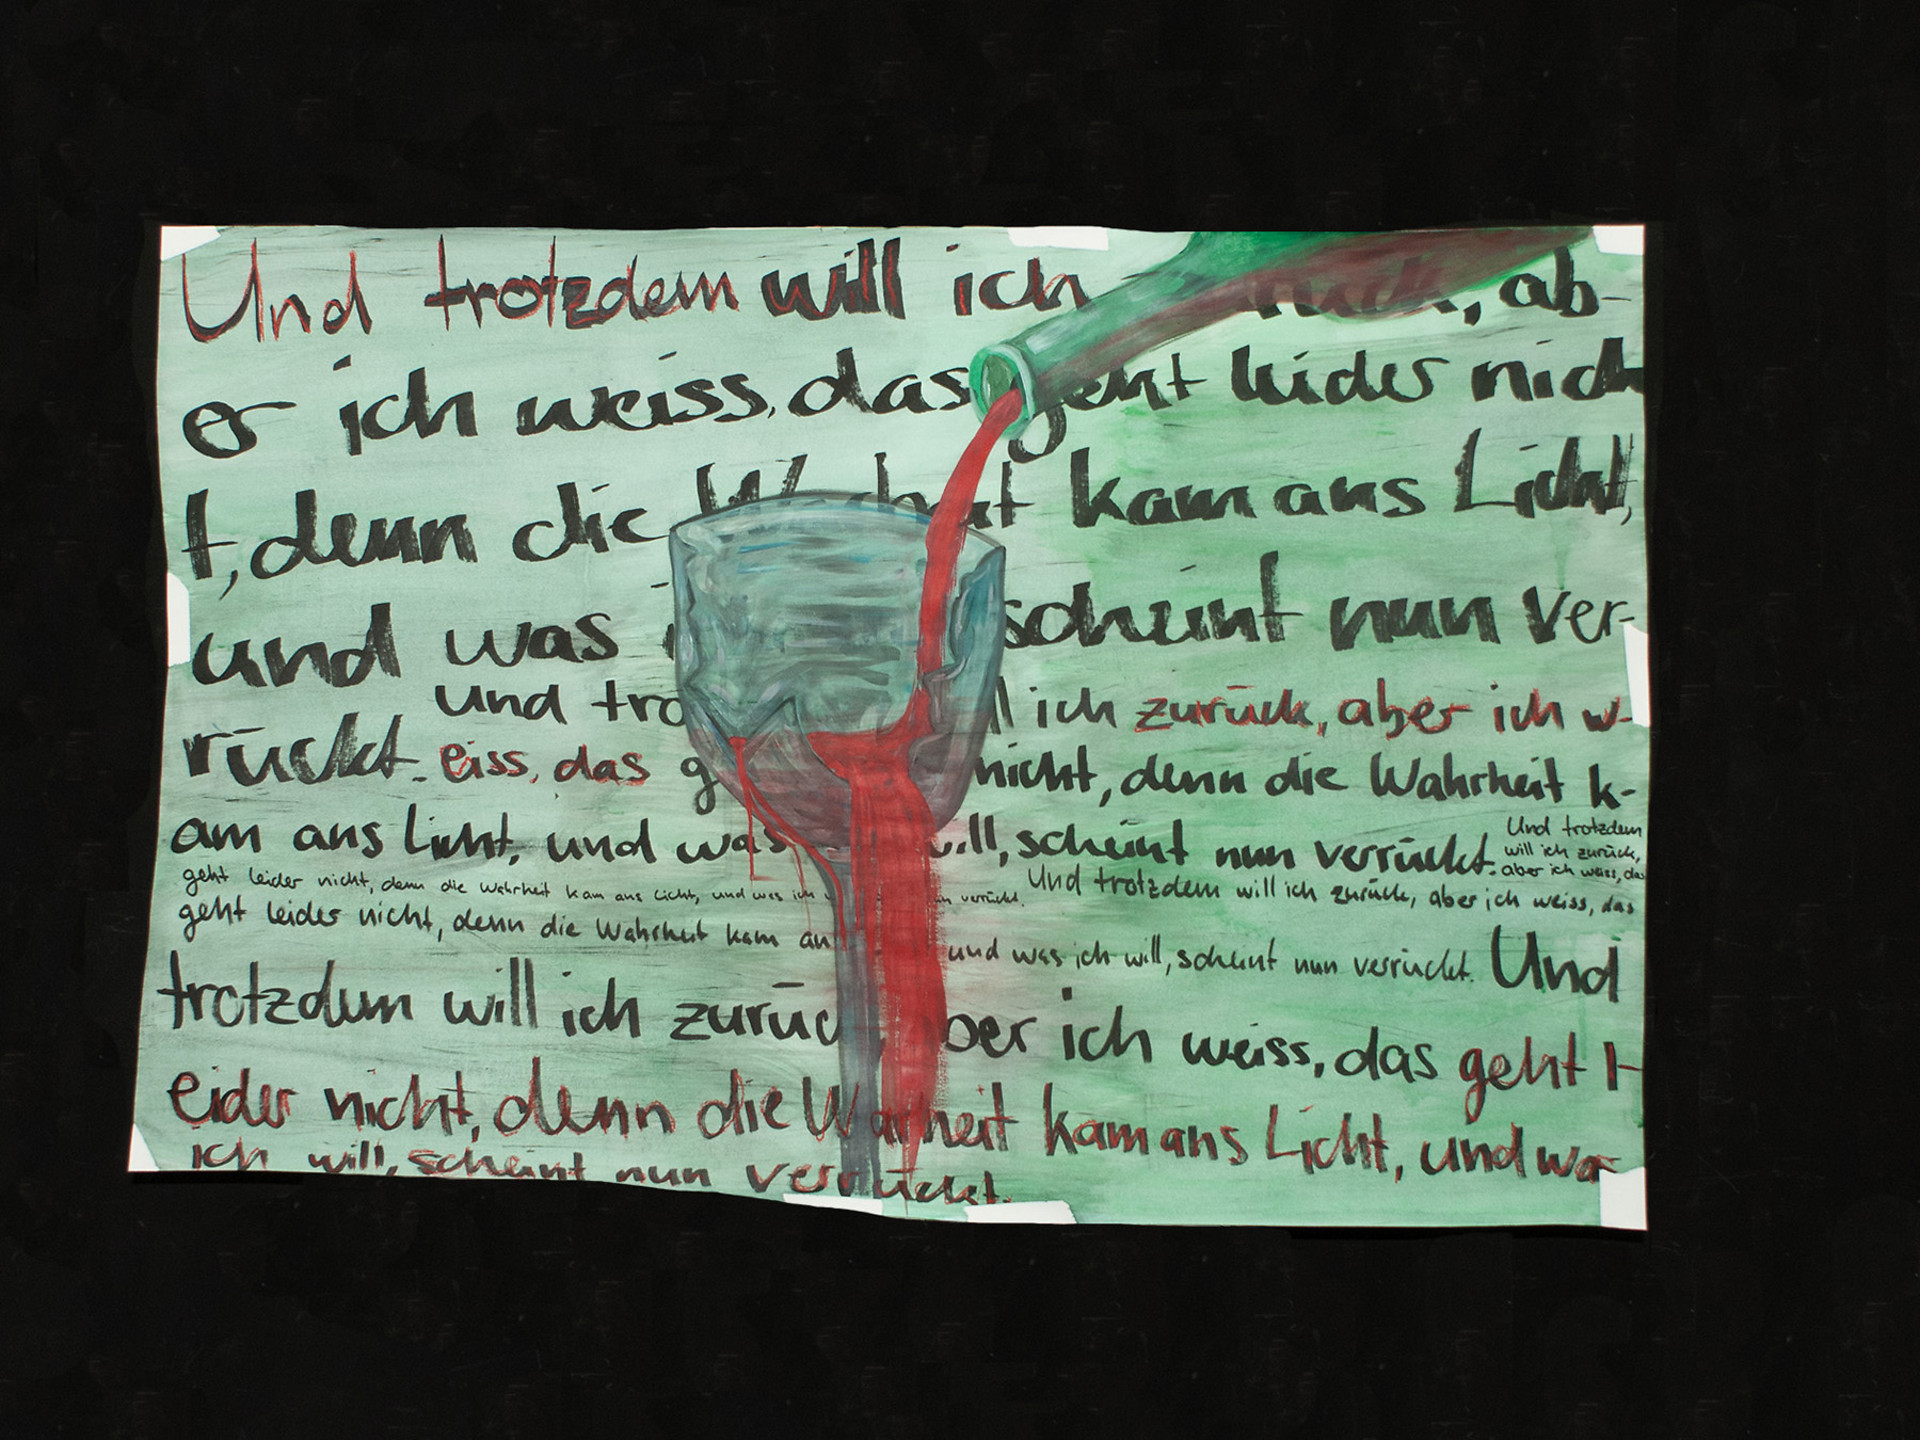 Und trotzdem will ich zurück, ab-
er ich weiss, das geht leider nich
t, denn die Wahrheit kam ans Licht,
und was scheint nun ver-
und tro ll ich zurück, aber ich w-
rückt. eiss, das g nicht, denn die Wahrheit k-
am ans Licht, und was will, scheint nun verrückt.
Und trotzdem
will ich zurück,
aber ich weiss, das
geht leider nicht, denn die Wahrheit kam ans Licht, und was ich verrückt.
Und trotzdem will ich zurück, aber ich weiss, das
geht leider nicht, denn die Wahrheit kam an und was ich will, scheint nun verrückt. Und
trotzdem will ich zurück ber ich weiss, das geht l-
eider nicht, denn die Warheit kam ans Licht, und wa
ich will, scheint nun verrückt.